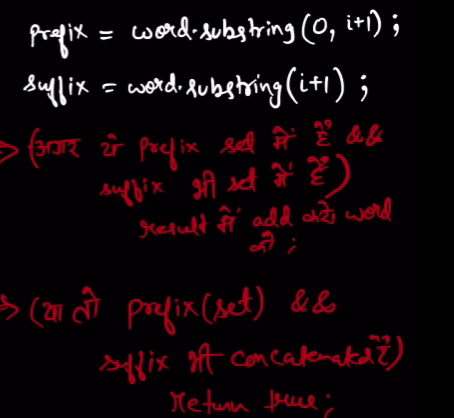 prefix = word.substring(0, i+1) ;
suffix = word.substring(i+1) ;
→ (अगर ये prefix set में है &&
suffix भी set में है)
result में add करो word
को ;
→ (या तो prefix(set) &&
suffix भी concatenated है)
return true ;